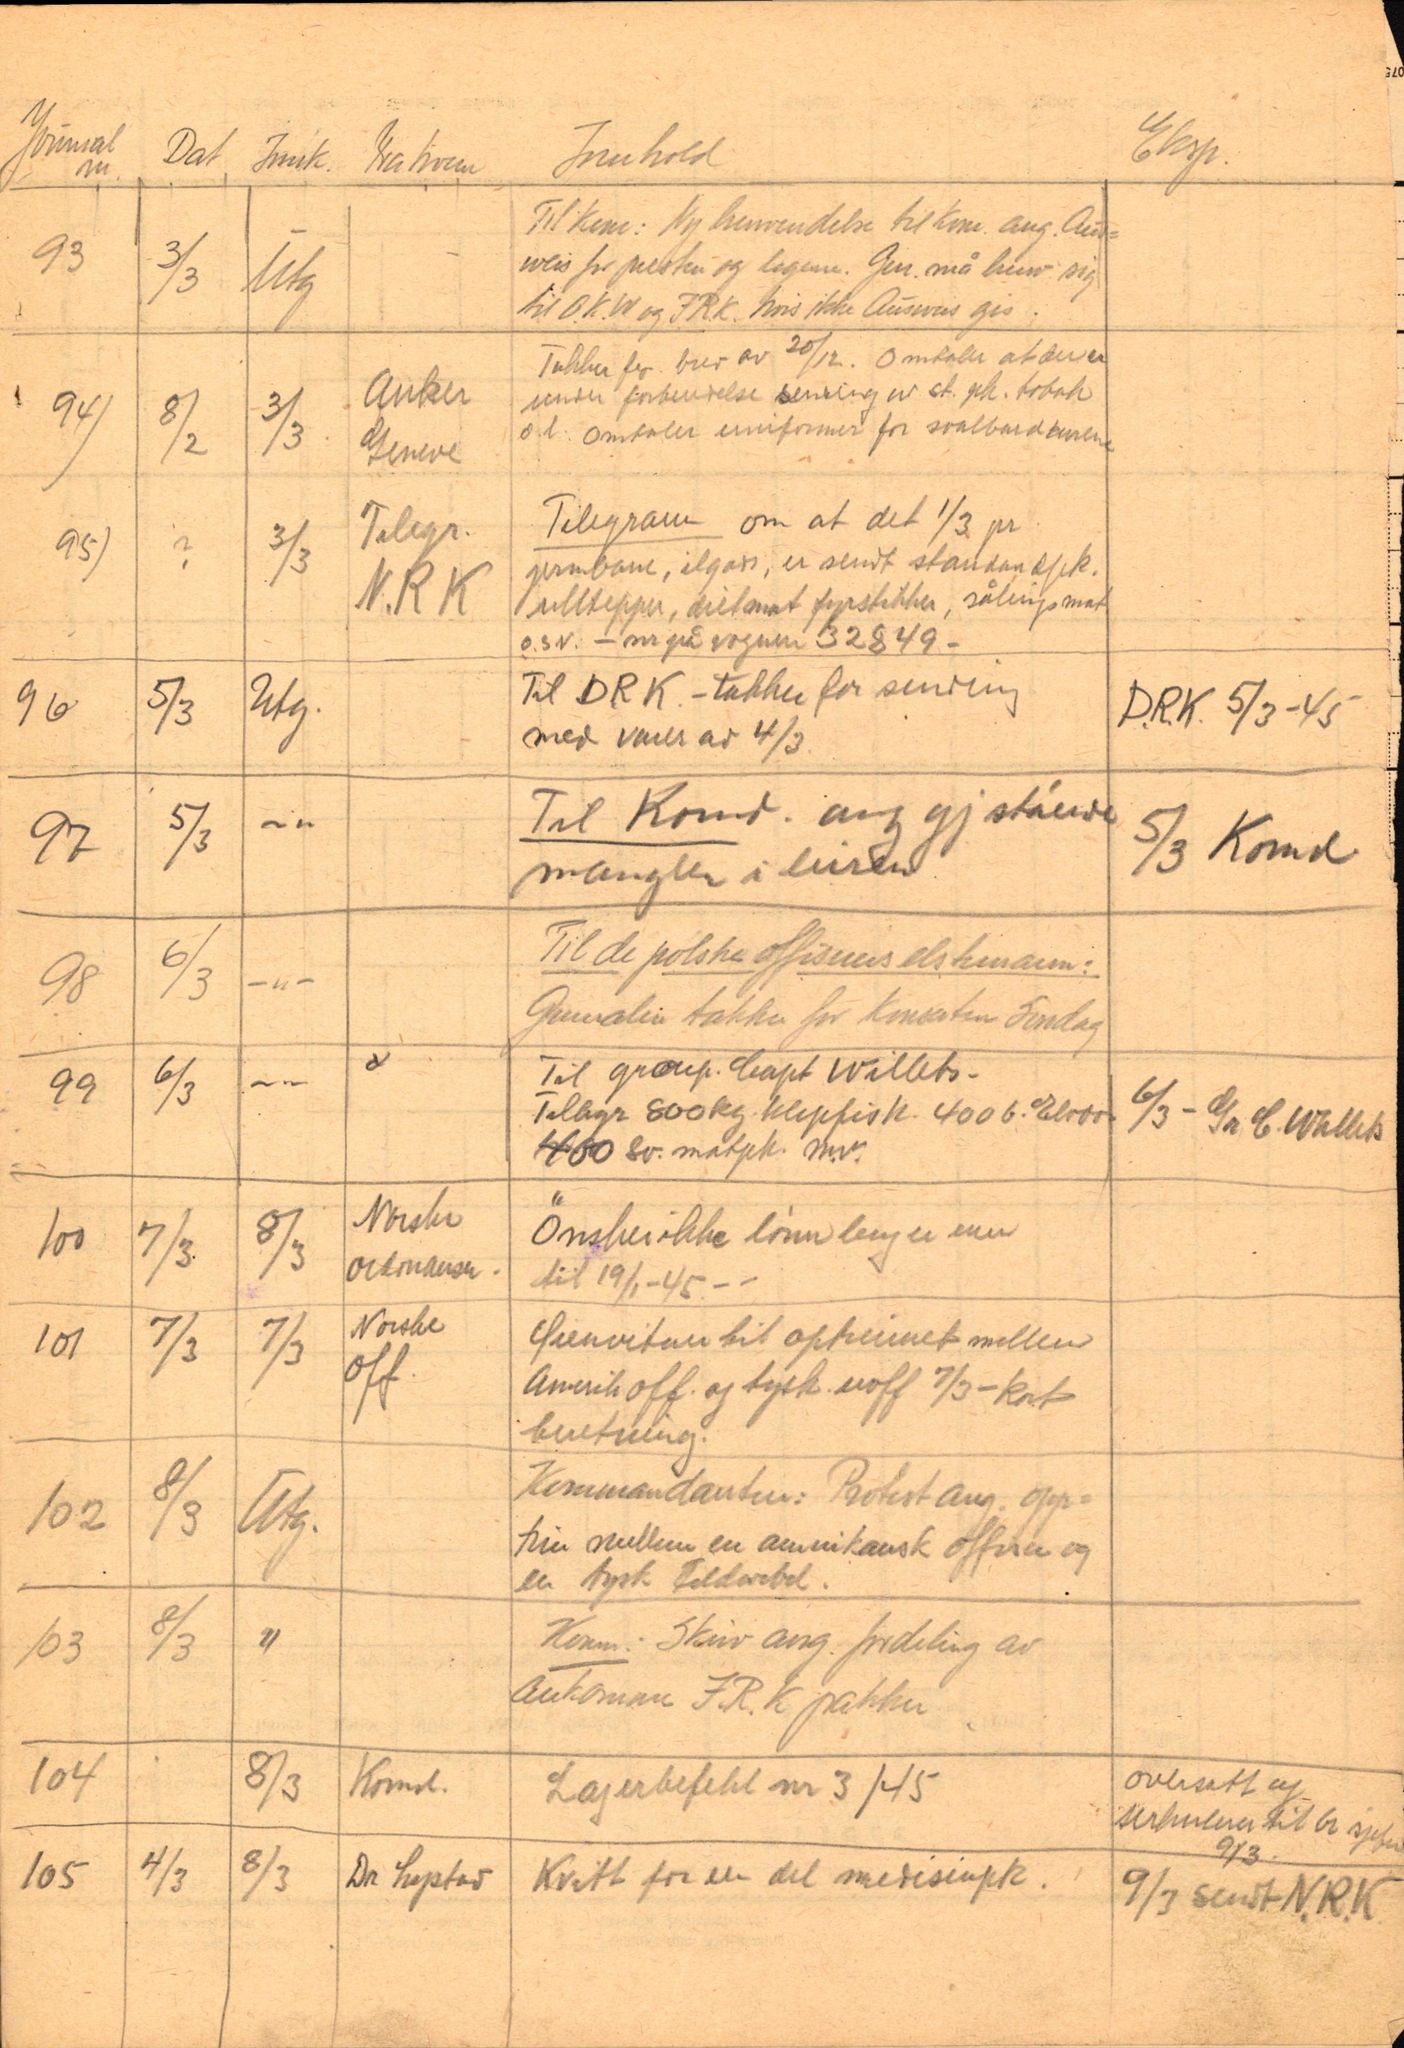 Journal nr. Dat Innk. Fra hvem Innhold Eksp.
93 3/3 Utg - Til Kom: Ny henvendelse til Kom. ang. Aus=
weis for prester og legene. Gen. må henv. sig
til O.K.W og I.R.K. hvis ikke Ausweis gis.
94) 8/2 3/3 Anker Geneve Takker for brev av 20/12. Omtaler at der er
under forberedelse sending av st. pk. tobak
o.l. Omtaler uniformer for svalbard
95) ? 3/3 Telegr. N.R.K Telegram om at det 1/3 pr
jernbane, ilgods, er sendt standardpk.
ulltepper, dietmat fyrstikker, sålingsmat
o.s.v. – nr på vognen 32849 –
96 5/3 Utg. Til D.R.K. – takker for sending D.R.K. 5/3-45
med varer av 4/3.
97 5/3 -"- Til Komd. ang gjstående 5/3 Komd
mangler i leiren
98 6/3 -"- Til de polske offiserers elsteman:
Generalen takker for konserten Søndag
99 6/3 -"- Til group. Capt Willets – 6/3 – Gr C. Willets
Telegr 800 kg. klippfisk. 400 b.
400 Sv. matpk. m.v.
100 7/3 8/3 Norske ordonanser. Önsker ikke lönn lenger enn
til 19/1-45 - -
101 7/3 7/3 Norske Off. Øienvitner til optrinnet mellem
Amerik off. og tysk. uoff 7/3 – Kort
beretning.
102 8/3 Utg. Kommandanten: Protest ang. opp=
trin mellem en amerikansk offiser og
en tysk Feldwebel.
103 8/3 " Komm: Skriv ang. fordeling av
ankomne I.R.K pakker
104 8/3 Komd. Lagerbefehl nr 3/45 oversatt og
til br sjefer
9/3.
105 4/3 8/3 Dr Kvitt for en del medisinpk. 9/3 sendt N.R.K